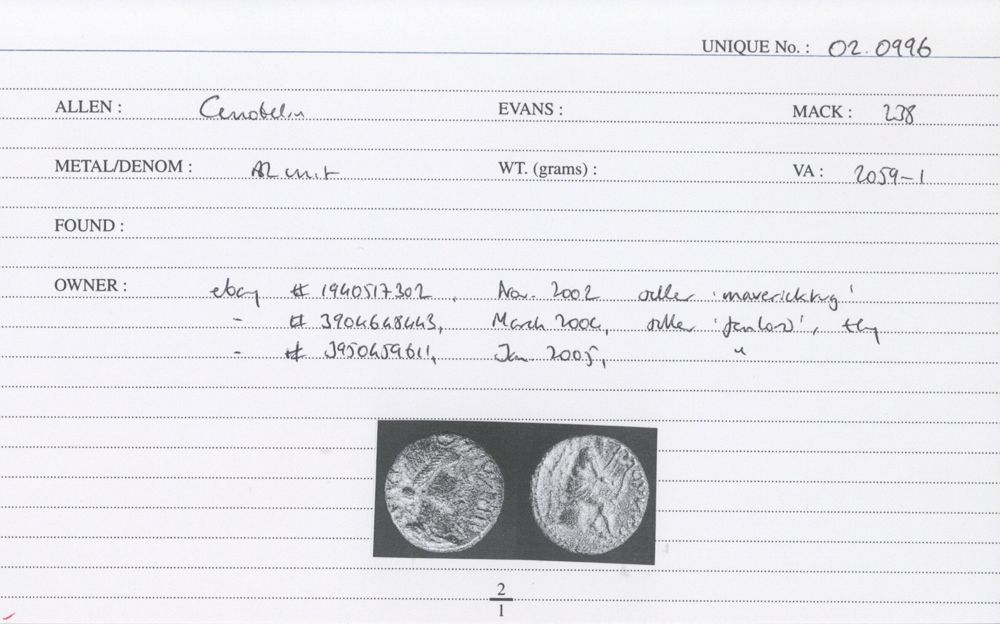 UNIQUE No. : 02.0996
ALLEN : Cunobelin EVANS : MACK : 238
METAL/DENOM : AR unit WT. (grams) : VA : 2059-1
FOUND :
OWNER : ebay # 1940517302, Nov. 2002 seller 'mavericktrg'
- # 3904648443, March 2004, seller
- # 3950459611, Jan 2005, "
2
1